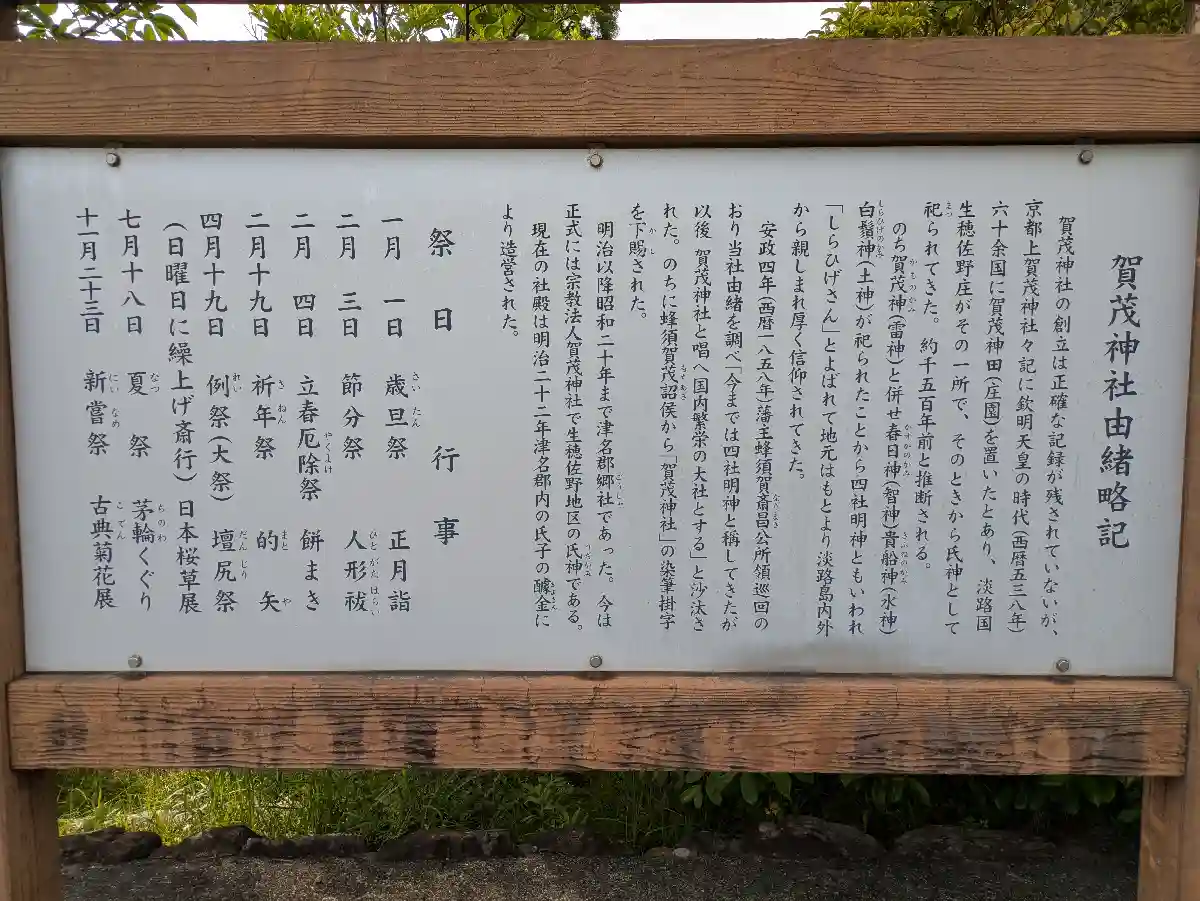 賀茂神社由緒略記
賀茂神社の創立は正確な記録が残されていないが、
京都上賀茂神社々記に欽明天皇の時代(西暦五三八年)
六十余国に賀茂神田(庄園)を置いたとあり、淡路国
生穂佐野庄がその一所で、そのときから氏神として
祀られてきた。約千五百年前と推断される。
のち賀茂神(雷神)と併せ春日神(智神)貴船神(水神)
白鬚神(土神)が祀られたことから四社明神ともいわれ
「しらひげさん」とよばれて地元はもとより淡路島内外
から親しまれ厚く信仰されてきた。
安政四年(西暦一八五八年)藩主蜂須賀斎昌公所領巡回の
おり当社由緒を調べ「今までは四社明神と称してきたが
以後 賀茂神社と唱へ国内繁栄の大社とする」と沙汰さ
れた。のちに蜂須賀茂韶侯から「賀茂神社」の染筆掛字
を下賜された。
明治以降昭和二十年まで津名郡郷社であった。今は
正式には宗教法人賀茂神社で生穂佐野地区の氏神である。
現在の社殿は明治二十二年津名郡内の氏子の醵金に
より造営された。
祭日行事
一月 一日 歳旦祭 正月詣
二月 三日 節分祭 人形祓
二月 四日 立春厄除祭 餅まき
二月十九日 祈年祭 的矢
四月十九日 例祭(大祭) 壇尻祭
(日曜日に繰上げ斎行) 日本桜草展
七月十八日 夏祭 茅輪くぐり
十一月二十三日 新嘗祭 古典菊花展